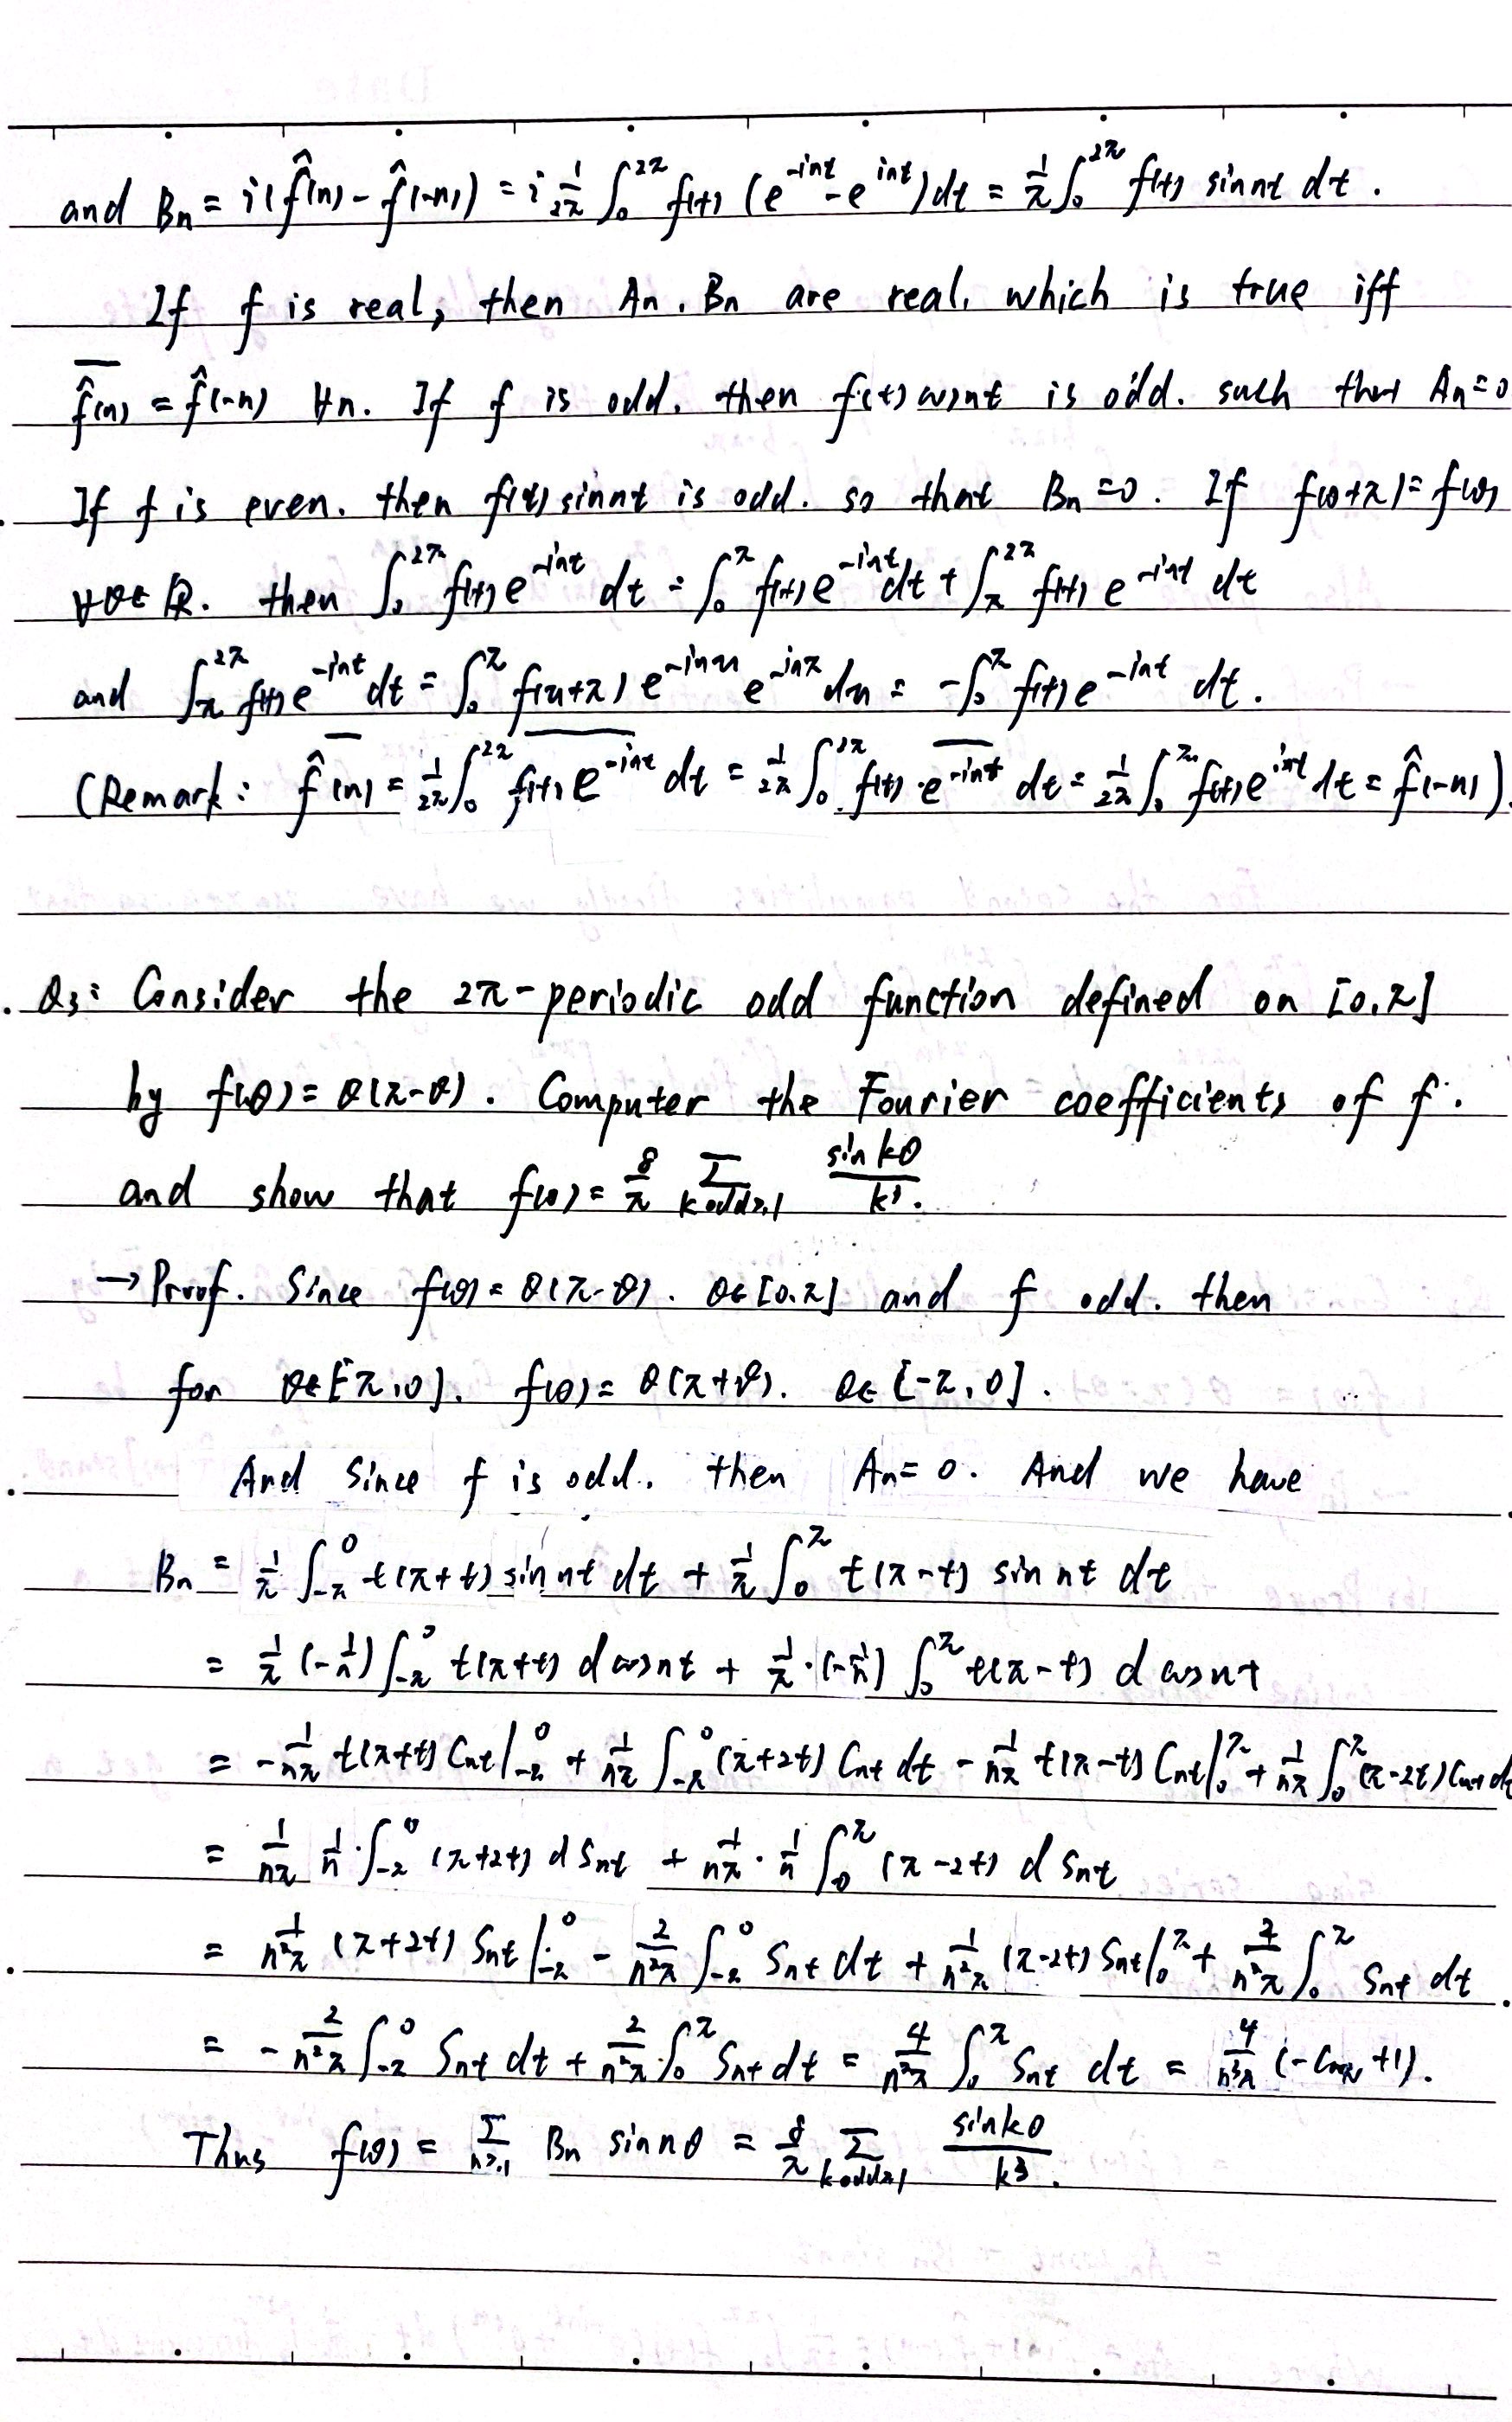 and Bn = i(f̂(n) - f̂(-n)) = i 1/2π ∫₀^{2π} f(t) (e^{-int} - e^{int}) dt = 1/π ∫₀^{2π} f(t) sin nt dt.
If f is real, then An, Bn are real, which is true iff
\overline{f̂(n)} = f̂(-n) ∀n. If f is odd. then f(t) cosnt is odd. such that An=0
If f is even. then f(t) sinnt is odd. so that Bn=0. If f(θ+π)=f(θ)
∀θ∈ℝ. then ∫₀^{2π} f(t) e^{-int} dt = ∫₀^{π} f(t) e^{-int} dt + ∫_π^{2π} f(t) e^{-int} dt
and ∫_π^{2π} f(t) e^{-int} dt = ∫₀^{π} f(u+π) e^{-inu} e^{-inπ} du = -∫₀^{π} f(t) e^{-int} dt.
(Remark: \overline{f̂(n)} = 1/2π ∫₀^{2π} \overline{f(t) e^{-int}} dt = 1/2π ∫₀^{2π} f(t)·\overline{e^{-int}} dt = 1/2π ∫₀^{2π} f(t) e^{int} dt = f̂(-n)).
Q3: Consider the 2π-periodic odd function defined on [0,π]
by f(θ) = θ(π-θ). Computer the Fourier coefficients of f.
and show that f(θ) = 8/π Σ_{k odd≥1} sin kθ / k³.
→ Proof. Since f(θ) = θ(π-θ). θ∈[0,π] and f odd. then
for θ∈[-π,0]. f(θ) = θ(π+θ). θ∈[-π,0].
And since f is odd. then An=0. And we have
Bn = 1/π ∫_{-π}^{0} t(π+t) sin nt dt + 1/π ∫₀^{π} t(π-t) sin nt dt
= 1/π (-1/n) ∫_{-π}^{0} t(π+t) d cosnt + 1/π·(-1/n) ∫₀^{π} t(π-t) d cosnt
= -1/nπ t(π+t) Cnt |_{-π}^{0} + 1/nπ ∫_{-π}^{0} (π+2t) Cnt dt - 1/nπ t(π-t) Cnt |₀^{π} + 1/nπ ∫₀^{π} (π-2t) Cnt dt
= 1/nπ 1/n·∫_{-π}^{0} (π+2t) d Snt + 1/nπ·1/n ∫₀^{π} (π-2t) d Snt
= 1/n²π (π+2t) Snt |_{-π}^{0} - 2/n²π ∫_{-π}^{0} Snt dt + 1/n²π (π-2t) Snt |₀^{π} + 2/n²π ∫₀^{π} Snt dt.
= -2/n²π ∫_{-π}^{0} Snt dt + 2/n²π·∫₀^{π} Snt dt = 4/n²π ∫₀^{π} Snt dt = 4/n³π (-Cnπ +1).
Thus f(θ) = Σ_{n≥1} Bn sin nθ = 8/π Σ_{k odd≥1} sin kθ / k³.